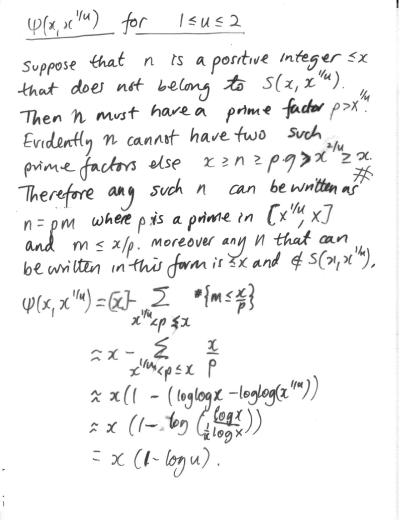 ψ(x, x^{1/u}) for 1≤u≤2
Suppose that n is a positive integer ≤x
that does not belong to S(x, x^{1/u}).
Then n must have a prime factor p>x^{1/u}.
Evidently n cannot have two such
prime factors else x≥n≥p·q>x^{2/u}≥x.
#
Therefore any such n can be written as
n=pm where p is a prime in [x^{1/u}, x]
and m≤x/p. moreover any n that can
be written in this form is ≤x and ∉ S(x, x^{1/u}).
ψ(x, x^{1/u}) = [x] - ∑_{x^{1/u}<p≤x} #{m≤x/p}
≈ x - ∑_{x^{1/u}<p≤x} x/p
≈ x(1 - (loglogx - loglog(x^{1/u}))
≈ x (1 - log (logx / (1/u logx)))
= x (1-logu).